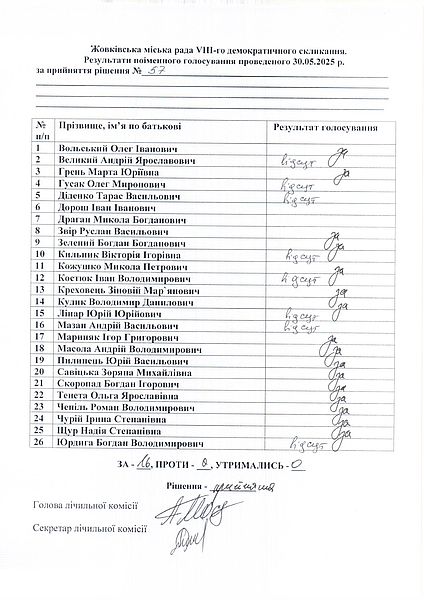 Жовківська міська рада VIII-го демократичного скликання.
Результати поіменного голосування проведеного 30.05.2025 р.
за прийняття рішення № 57
№ п/п Прізвище, ім’я по батькові Результат голосування
1 Вольський Олег Іванович за
2 Великий Андрій Ярославович відсут
3 Грень Марта Юріївна за
4 Гусак Олег Миронович відсут
5 Діденко Тарас Васильович відсут
6 Дорош Іван Іванович
7 Драган Микола Богданович
8 Звір Руслан Васильович за
9 Зелений Богдан Богданович за
10 Кильник Вікторія Ігорівна відсут
11 Кожушко Микола Петрович за
12 Костюк Іван Володимирович відсут
13 Креховець Зіновій Мар`янович за
14 Кулик Володимир Данилович за
15 Ліпар Юрій Юрійович відсут
16 Мазан Андрій Васильович відсут
17 Мариняк Ігор Григорович за
18 Масола Андрій Володимирович за
19 Пилипець Юрій Васильович за
20 Савіцька Зоряна Михайлівна за
21 Скоропад Богдан Ігорович за
22 Тенета Ольга Ярославівна за
23 Чепіль Роман Володимирович за
24 Чурій Ірина Степанівна за
25 Щур Надія Степанівна за
26 Юрдига Богдан Володимирович відсут
ЗА - 16, ПРОТИ - 0, УТРИМАЛИСЬ - 0
Рішення - прийняття
Голова лічильної комісії
Секретар лічильної комісії